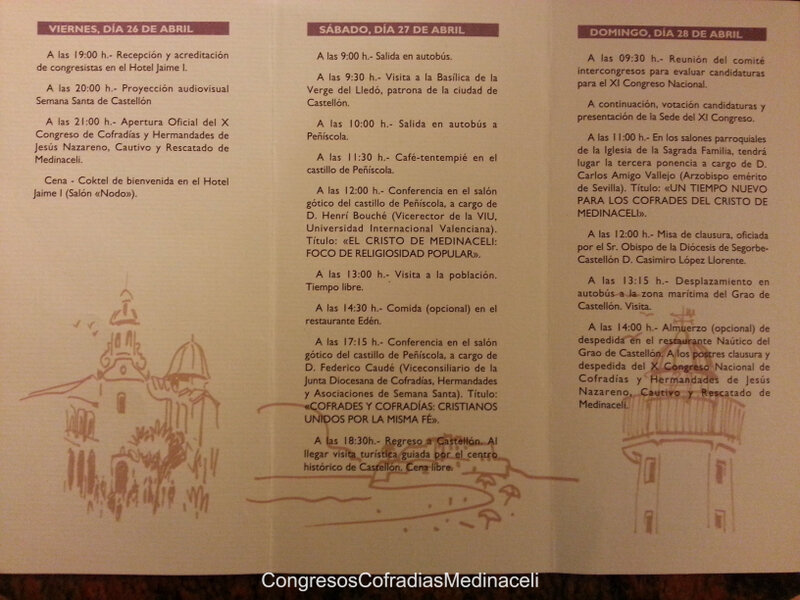 VIERNES, DÍA 26 DE ABRIL
A las 19:00 h.- Recepción y acreditación
de congresistas en el Hotel Jaime I.
A las 20:00 h.- Proyección audiovisual
Semana Santa de Castellón
A las 21:00 h.- Apertura Oficial del X
Congreso de Cofradías y Hermandades de
Jesús Nazareno, Cautivo y Rescatado de
Medinaceli.
Cena - Coktel de bienvenida en el Hotel
Jaime I (Salón «Nodo»).
SÁBADO, DÍA 27 DE ABRIL
A las 9:00 h.- Salida en autobús.
A las 9:30 h.- Visita a la Basílica de la
Verge del Lledó, patrona de la ciudad de
Castellón.
A las 10:00 h.- Salida en autobús a
Peñíscola.
A las 11:30 h.- Café-tentempié en el
castillo de Peñíscola.
A las 12:00 h.- Conferencia en el salón
gótico del castillo de Peñíscola, a cargo de
D. Henrí Bouché (Vicerector de la VIU,
Universidad Internacional Valenciana).
Título: «EL CRISTO DE MEDINACELI:
FOCO DE RELIGIOSIDAD POPULAR».
A las 13:00 h.- Visita a la población.
Tiempo libre.
A las 14:30 h.- Comida (opcional) en el
restaurante Edén.
A las 17:15 h.- Conferencia en el salón
gótico del castillo de Peñíscola, a cargo de
D. Federico Caudé (Viceconsiliario de la
Junta Diocesana de Cofradías, Hermandades
y Asociaciones de Semana Santa). Título:
«COFRADES Y COFRADÍAS: CRISTIANOS
UNIDOS POR LA MISMA FÉ».
A las 18:30h.- Regreso a Castellón. Al
llegar visita turística guiada por el centro
histórico de Castellón. Cena libre.
DOMINGO, DÍA 28 DE ABRIL
A las 09:30 h.- Reunión del comité
intercongresos para evaluar candidaturas
para el XI Congreso Nacional.
A continuación, votación candidaturas y
presentación de la Sede del XI Congreso.
A las 11:00 h.- En los salones parroquiales
de la Iglesia de la Sagrada Familia, tendrá
lugar la tercera ponencia a cargo de D.
Carlos Amigo Vallejo (Arzobispo emérito
de Sevilla). Título: «UN TIEMPO NUEVO
PARA LOS COFRADES DEL CRISTO DE
MEDINACELI».
A las 12:00 h.- Misa de clausura, oficiada
por el Sr. Obispo de la Diócesis de Segorbe-
Castellón D. Casimiro López Llorente.
A las 13:15 h.- Desplazamiento en
autobús a la zona marítima del Grao de
Castellón. Visita.
A las 14:00 h.- Almuerzo (opcional) de
despedida en el restaurante Naútico del
Grao de Castellón. A los postres clausura y
despedida del X Congreso Nacional de
Cofradías y Hermandades de Jesús
Nazareno, Cautivo y Rescatado de
Medinaceli.
CongresosCofradiasMedinaceli